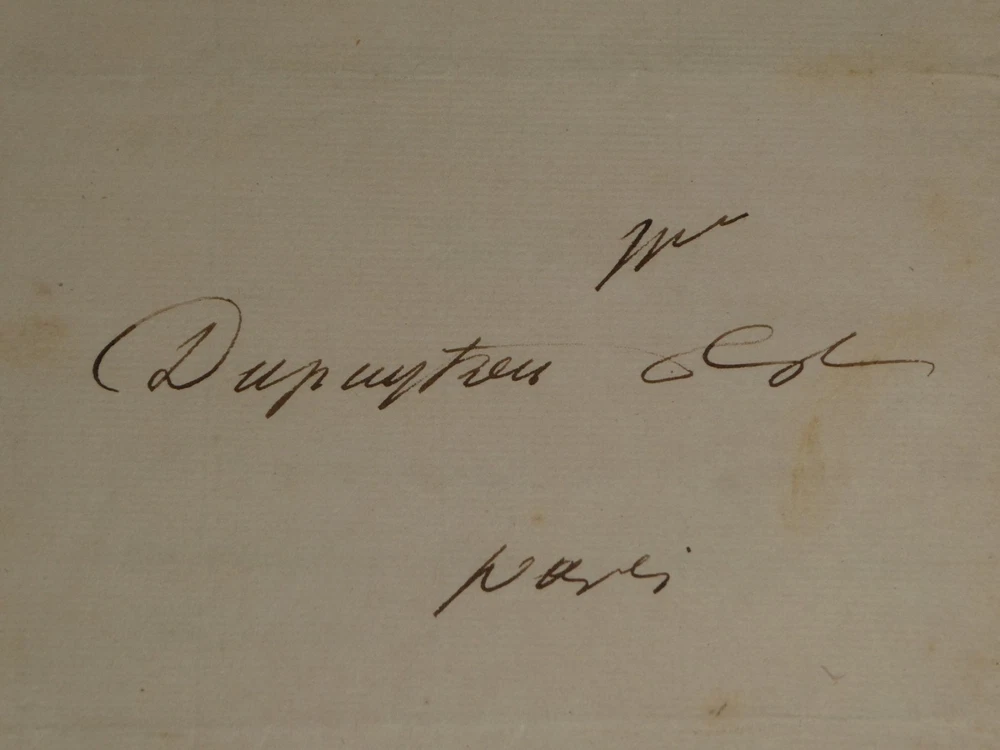 Mr
Dupuytren
paris